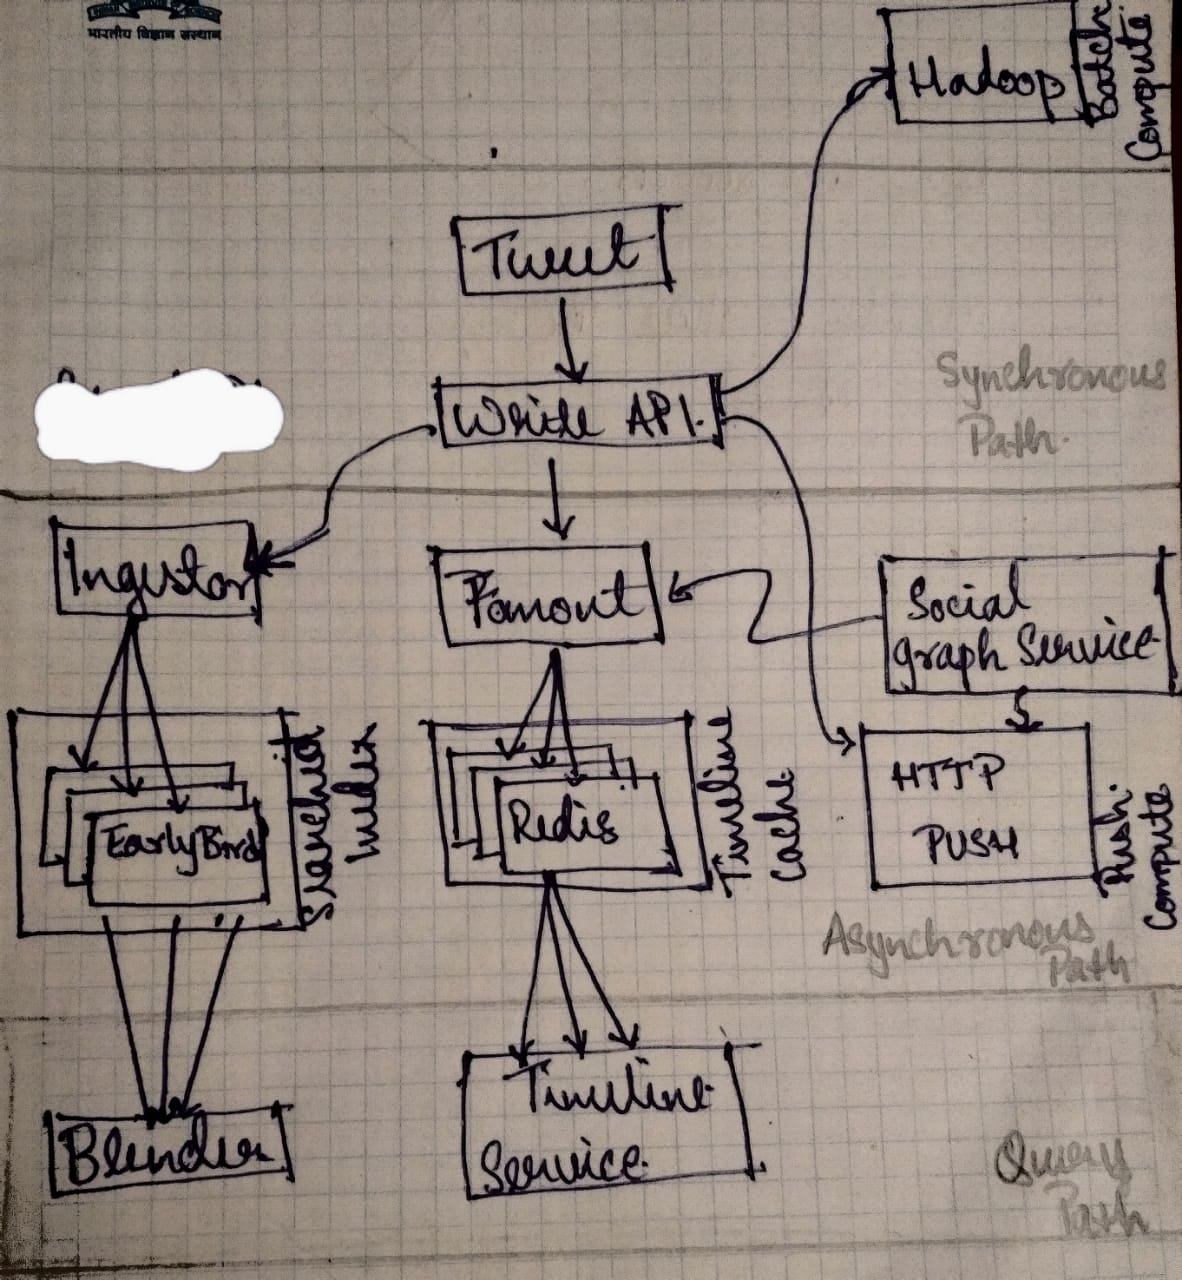 भारतीय विज्ञान संस्थान
Hadoop
Batch
Compute
Tweet
Synchronous
Path.
Write API.
Ingestor
Fanout
Social
graph Service
Search
Index
EarlyBird
Redis
Timeline
Cache.
HTTP
PUSH
Push.
Compute
Asynchronous
Path
Timeline
Service.
Blender
Query
Path